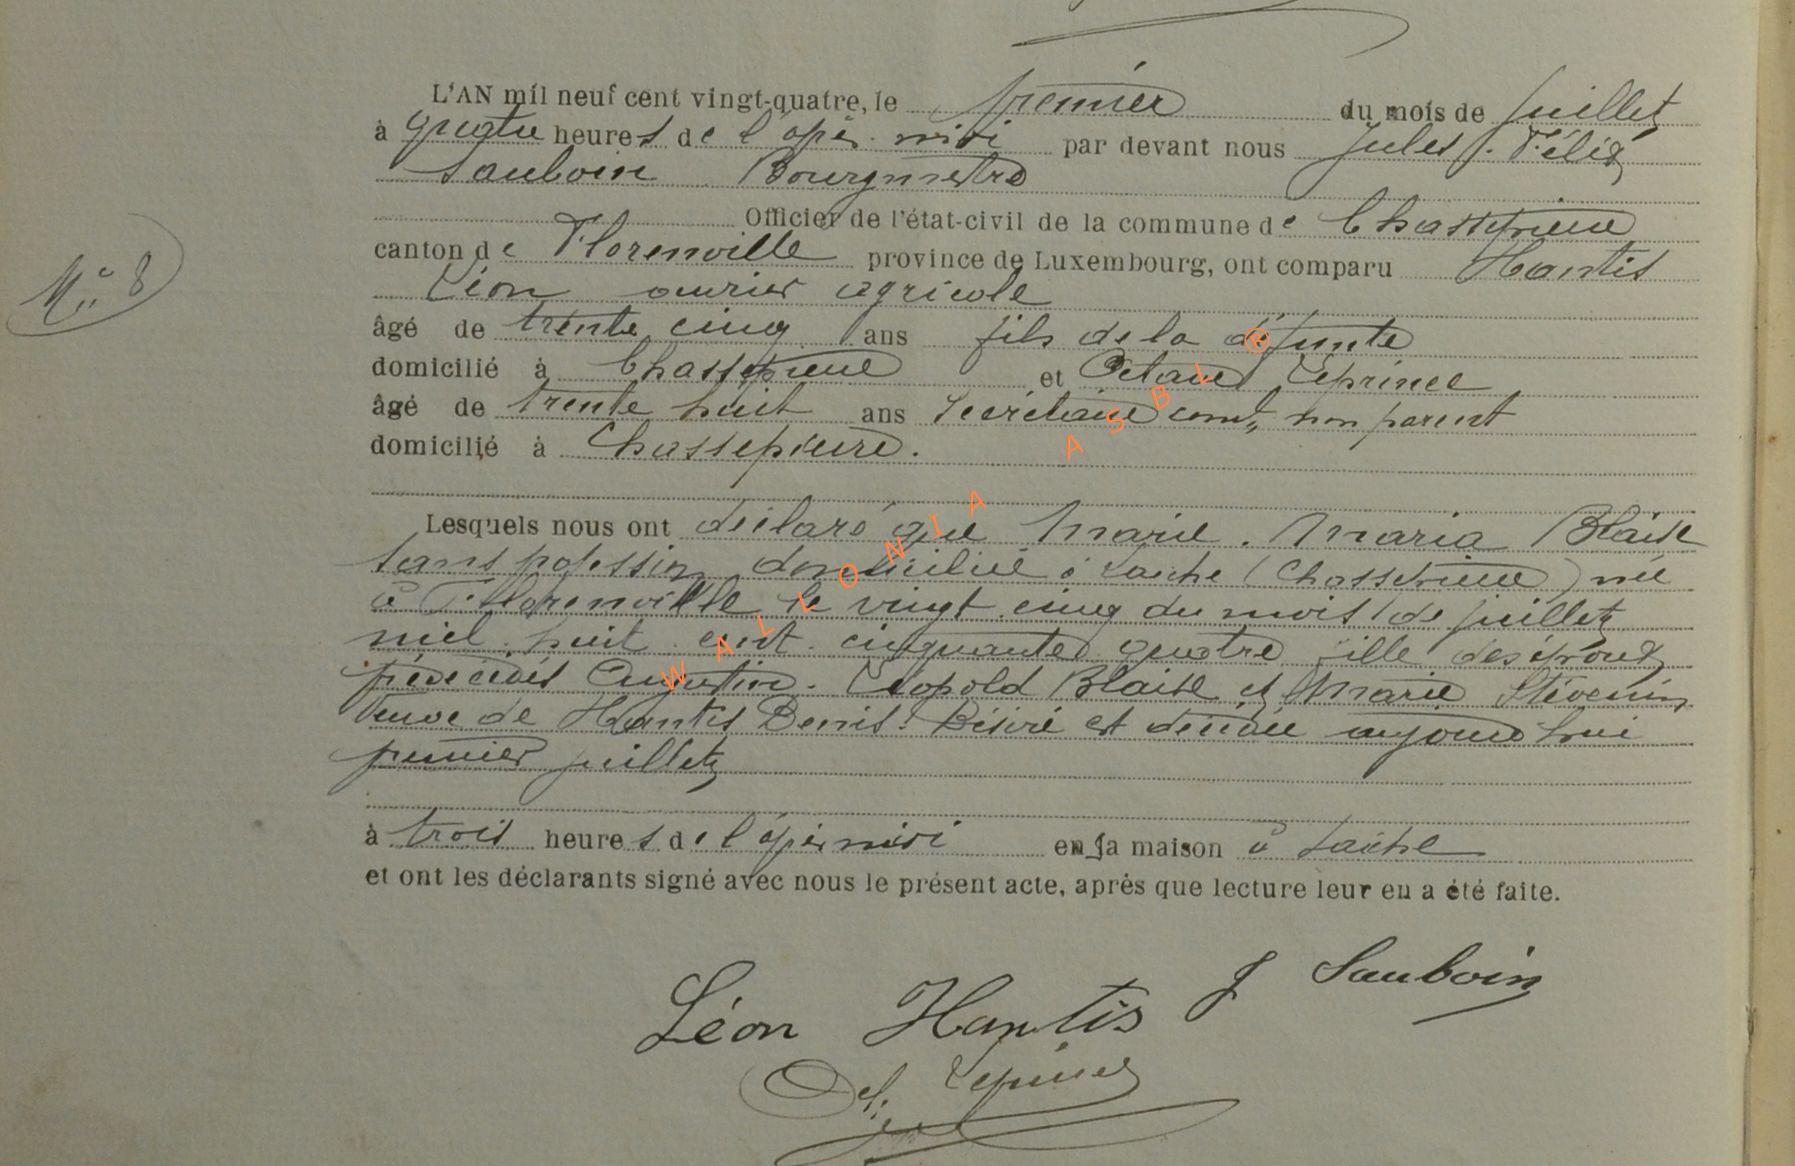 L'AN mil neuf cent vingt-quatre, le premier du mois de juillet
à quatre heures de l'apès-midi par devant nous Jules J. Félix
Sauboin Bourgmestre
Officier de l'état-civil de la commune de Chassepierre
canton de Florenville province de Luxembourg, ont comparu Hantis
Nº 8
Léon ouvrier agricole
âgé de trente cinq ans fils de la défunte
domicilié à Chassepierre et Octave Leprince
âgé de trente huit ans Secrétaire comt, non parent
domicilié à Chassepierre.
Lesquels nous ont déclaré que Marie-Maria Blaise
sans profession domiciliée à Laiche (Chassepierre) née
à Florenville le vingt-cinq du mois de juillet
mil-huit-cent-cinquante quatre fille des époux
précédés Augustin-Léopold Blaise et Marie Stévenin
veuve de Hantis Denis-Désiré est décédée aujourd'hui
premier juillet
à trois heures de l'après midi en sa maison à Laiche
et ont les déclarants signé avec nous le présent acte, après que lecture leur en a été faite.
J Sauboin
Léon Hantis
Oct. Leprince
WALLONIA ASBL